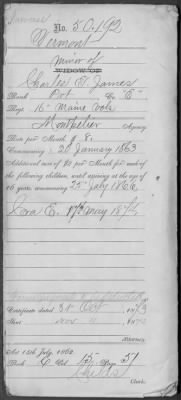 No. 50,192
Vermont
Minor of
WIDOW OF
Charles G. James
Rank Pvt Co. "E"
Regt 16" Maine Vols
Montpelier Agency
Rate per Month $ 8.
Commencing 20 January 1863
Additional sum of $2 per Month for each of
the following children, until arriving at the age of
16 years, commencing 25" July 1866
Cora E. 17" May 18
Certificate dated 31 Oct 1873
Sent Nov 11 187
Attorney.
Act 14th July, 1862.
Book C Vol. 15 Page 51
Clerk.